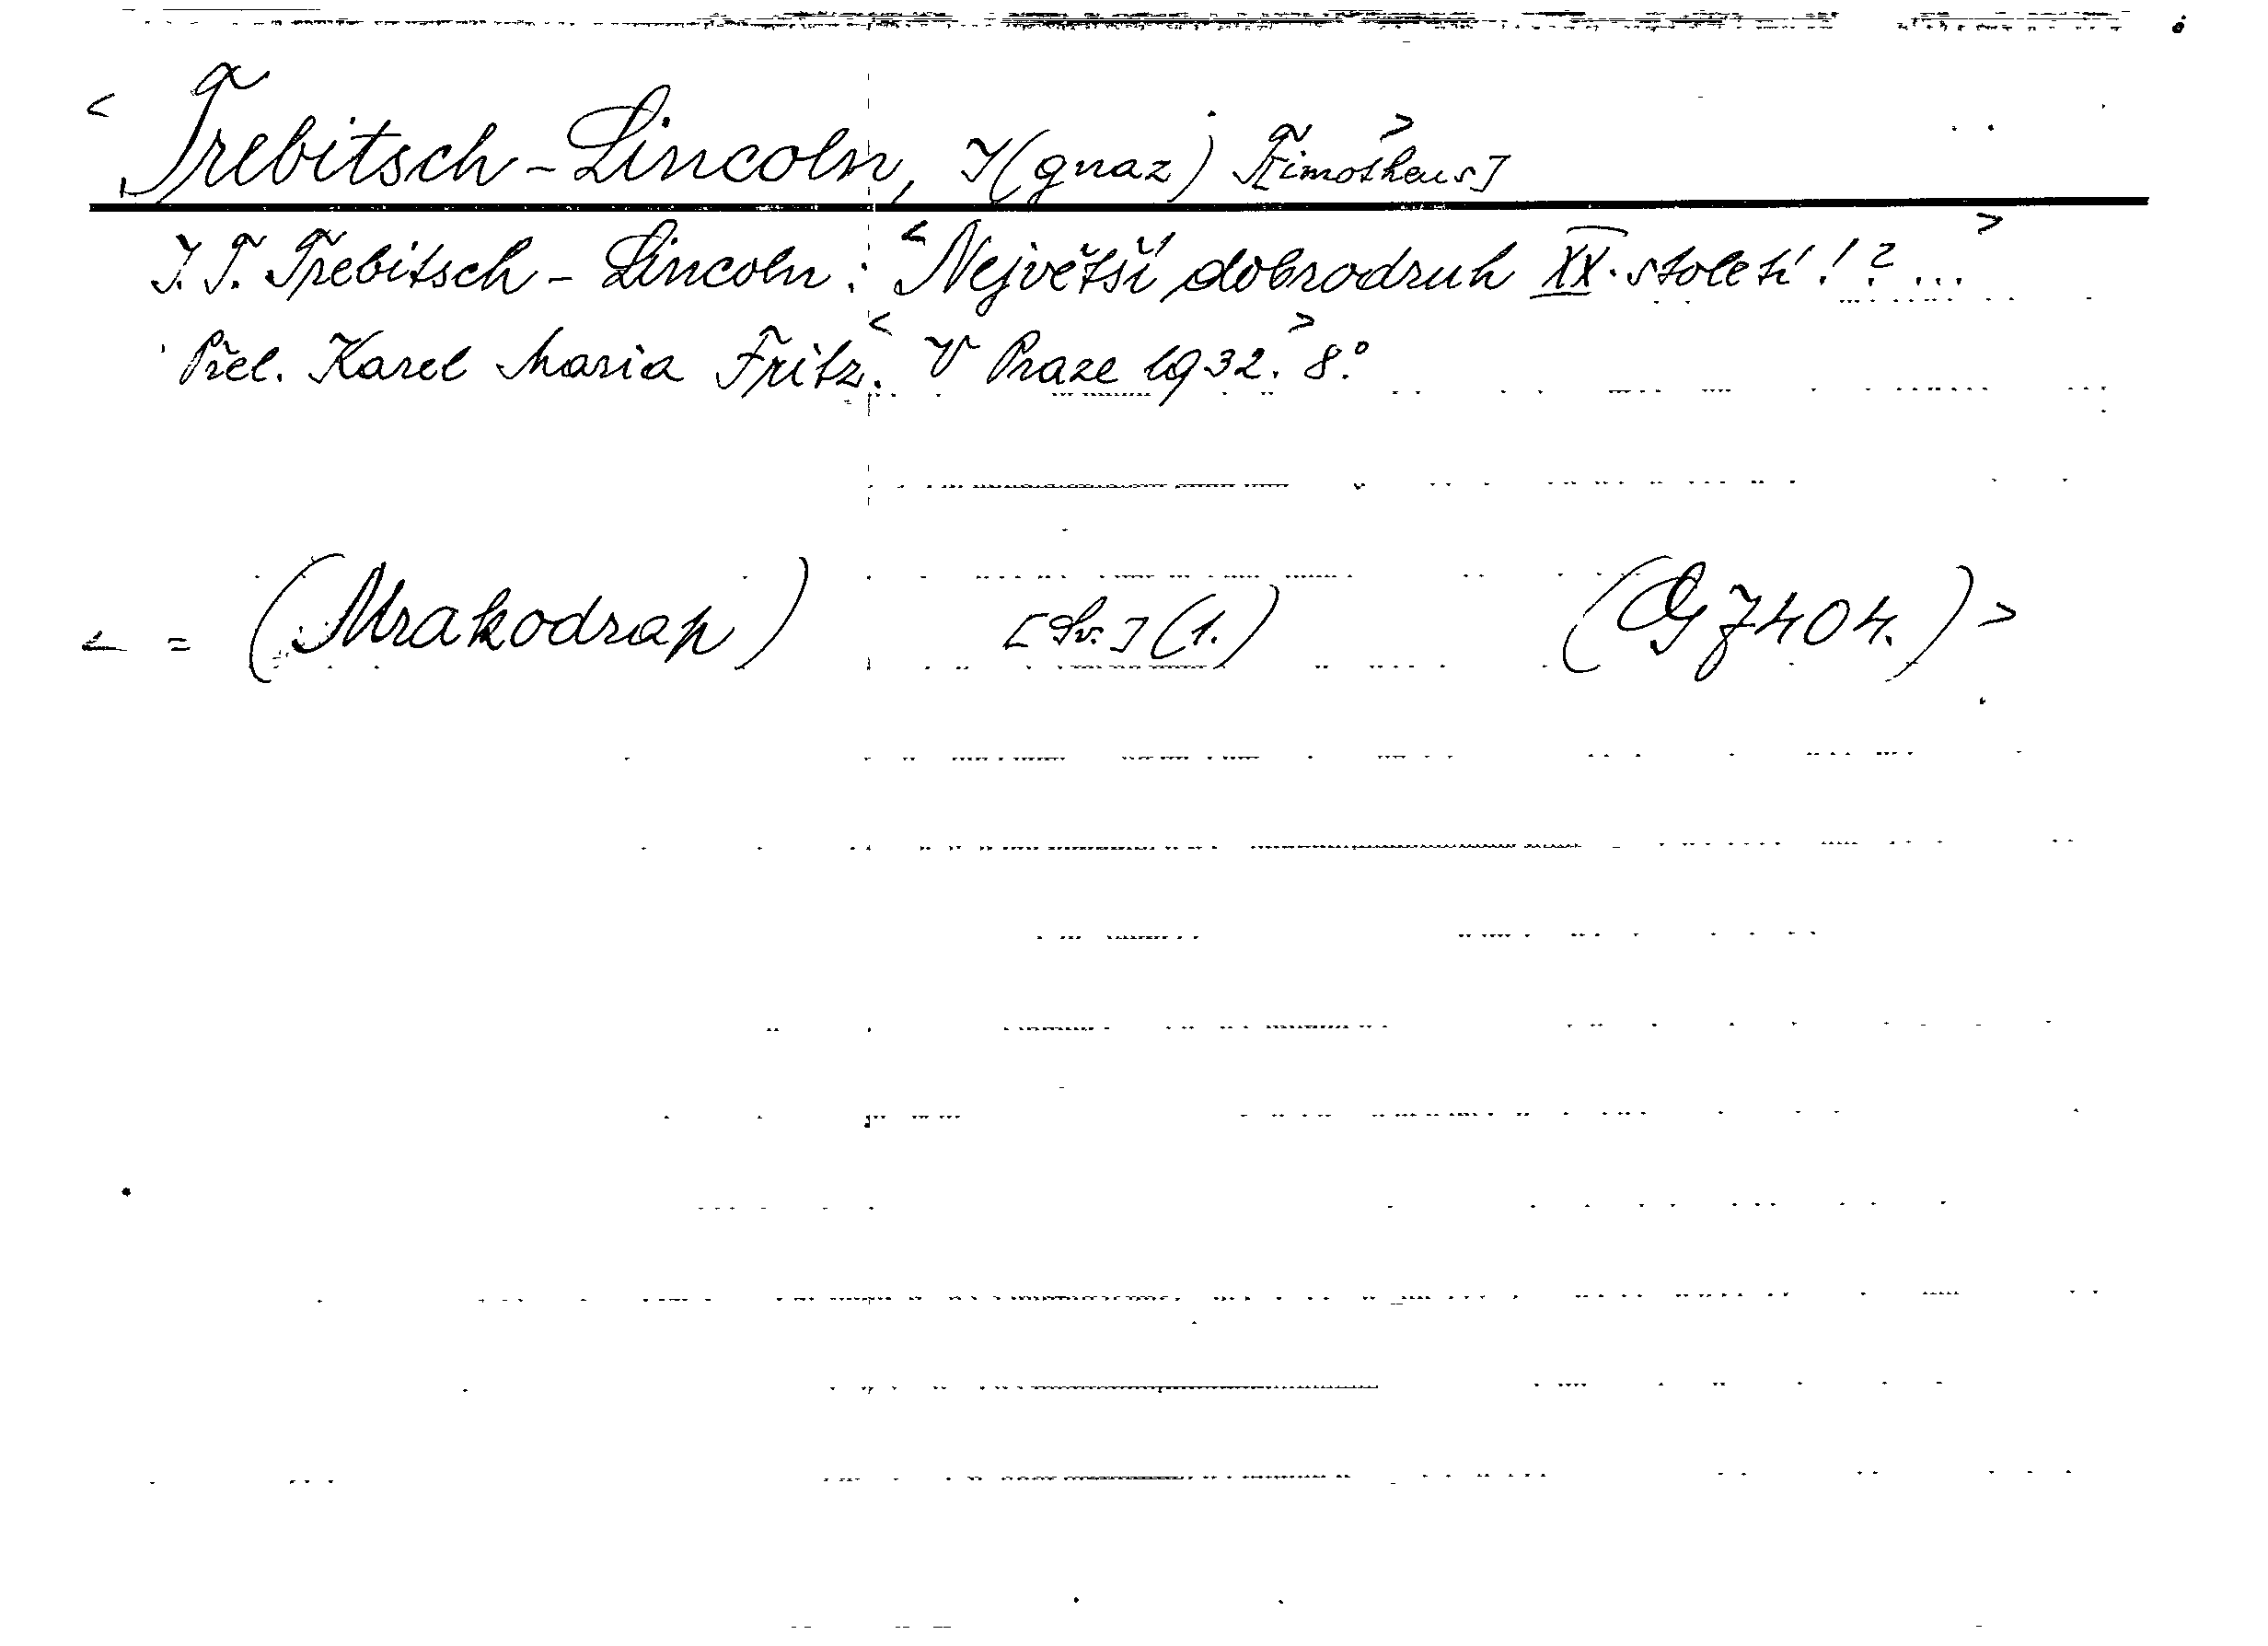 < Trebitsch-Lincoln, I(gnaz) T[imotheus] >
I. T. Trebitsch-Lincoln: < Největší dobrodruh XX. století!?... >
Přel. Karel Maria Fritz. < V Praze 1932. > 8°.
< = (Mrakodrap) [Sv.] (1.) (G 7404.) >